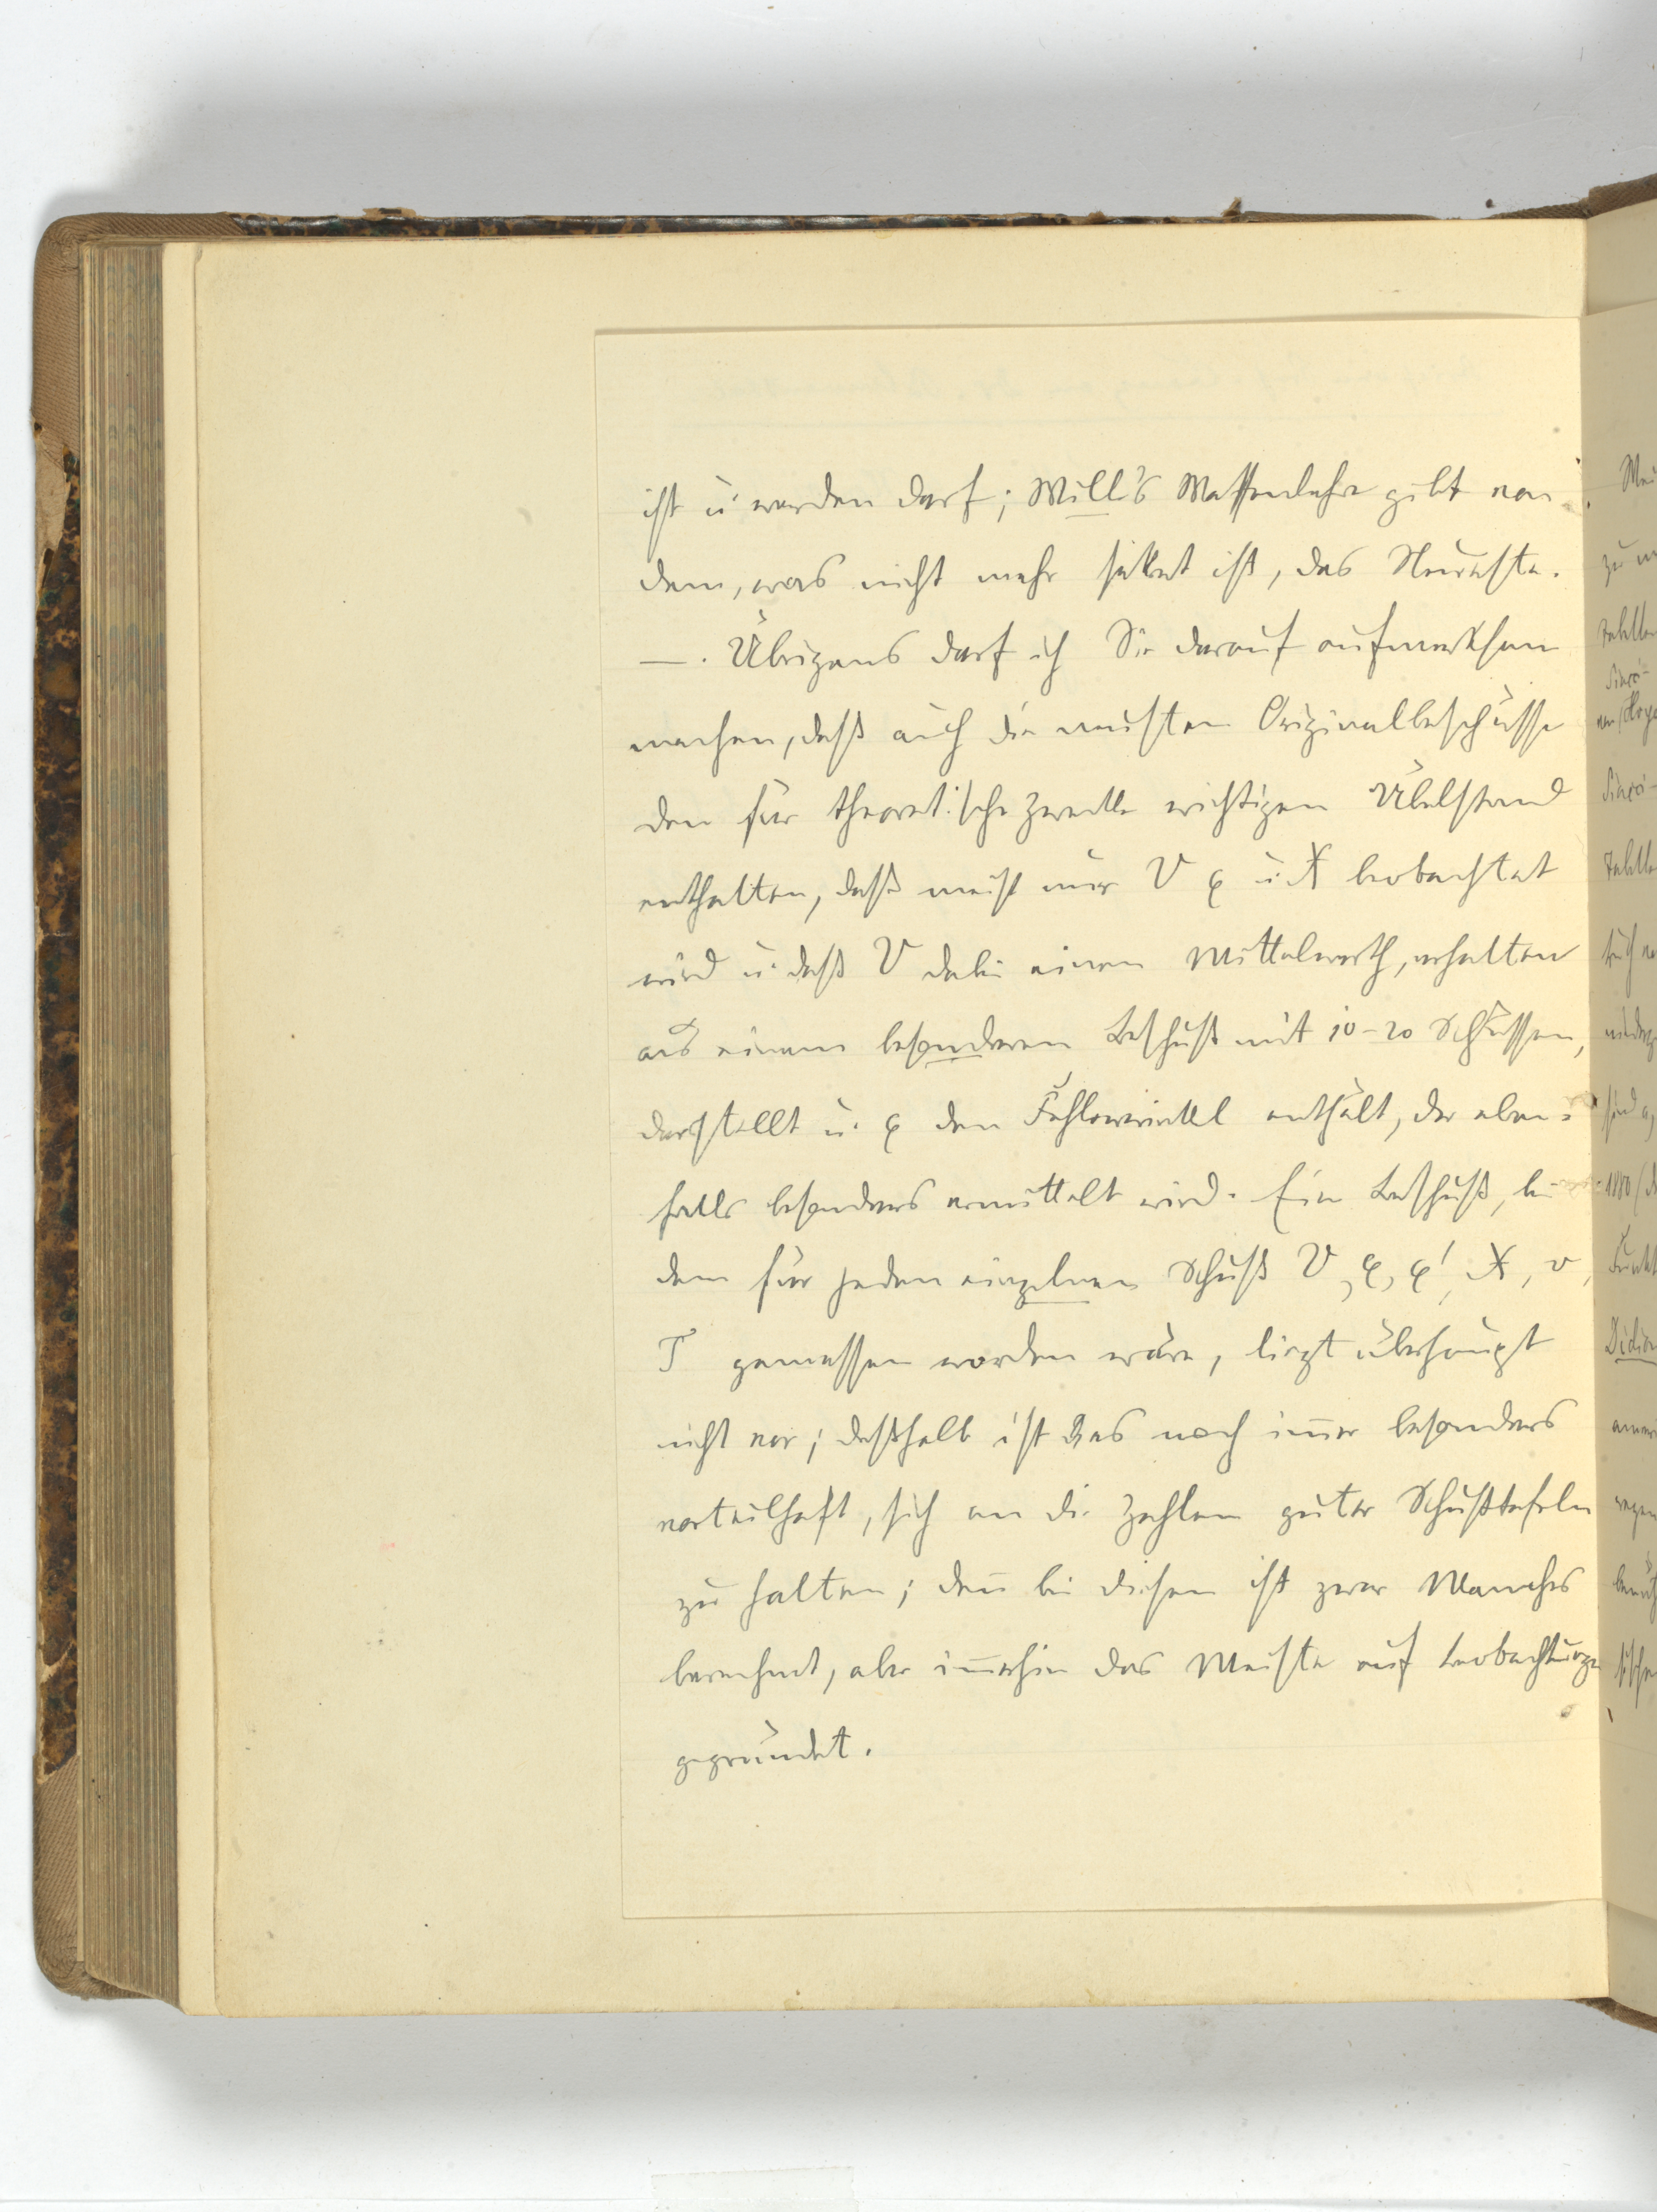 ist u. werden darf; Will's Waffenlehre gibt von
dem, was nicht mehr sekret ist, das Neueste.
—. Übrigens darf ich Sie darauf aufmerksam
machen, daß auch die meisten Originalbeschüsse
den für theoretische Zwecke wichtigen Übelstand
enthalten, daß meist nur V φ u. X beobachtet
wird u. daß V dabei einen Mittelwerth, erhalten
aus einem besonderen Beschuß mit 10-20 Schüssen,
darstellt u. φ den Fehlerwinkel enthält, der eben-
falls besonders ermittelt wird. Ein Beschuß, bei
dem für jeden einzelnen Schuß V, φ, φ', X, v,
T gemessen worden wäre, liegt überhaupt
nicht vor; deßhalb ist das noch im̄er besonders
vorteilhaft, sich an die Zahlen guter Schußtafeln
zu halten; den̄ bei diesen ist zwar Manches
berechnet, aber im̄erhin das Meiste auf Beobachtungen
gegründet.